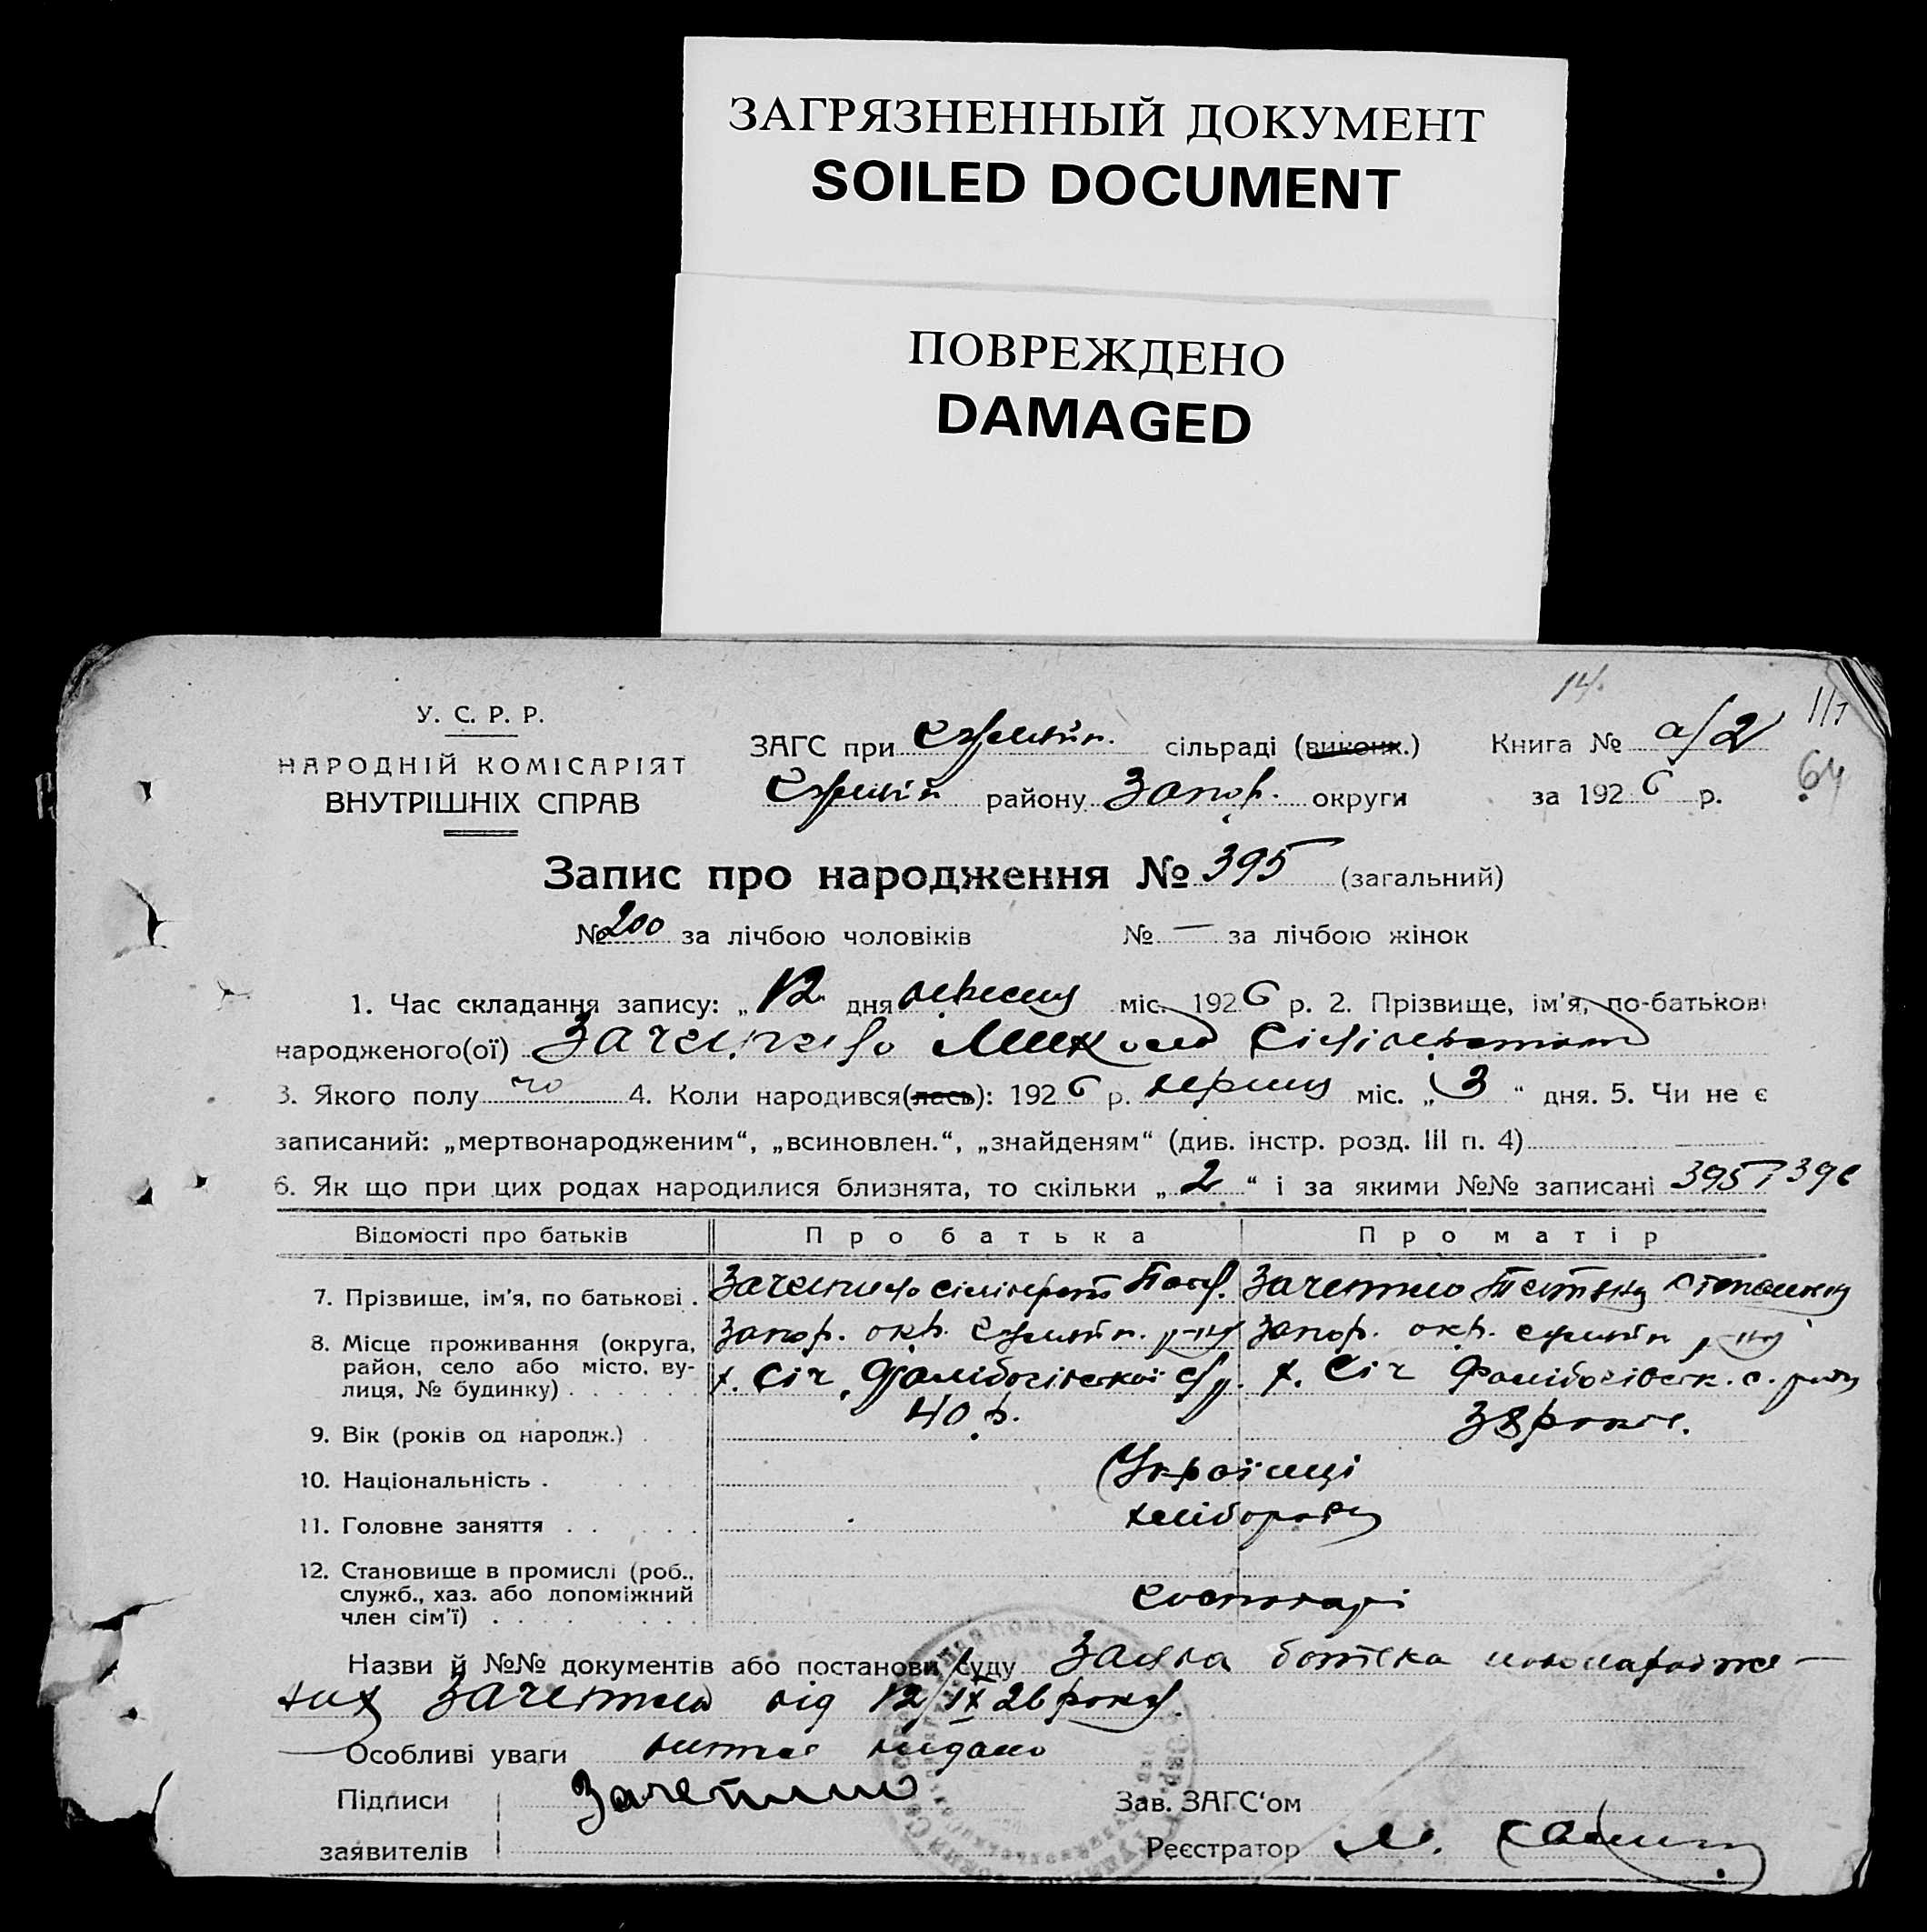 ЗАГРЯЗНЕННЫЙ ДОКУМЕНТ
SOILED DOCUMENT
ПОВРЕЖДЕНО
DAMAGED
14.
117
64
У. С. Р. Р.
НАРОДНІЙ КОМІСАРІЯТ
ВНУТРІШНІХ СПРАВ
ЗАГС при сільраді (виконк.) Книга № а/2
району Запор. округи за 1926 р.
Запис про народження № 395 (загальний)
№ 200 за лічбою чоловіків № — за лічбою жінок
1. Час складання запису: „12 дня вересня міс. 1926 р. 2. Прізвище, ім'я, по-батькові
народженого(ої) Микола
3. Якого полу чо 4. Коли народився(лась): 1926 р. вересня міс. „3“ дня. 5. Чи не є
записаний: „мертвонародженим“, „всиновлен.“, „знайденям“ (див. інстр. розд. III п. 4)
6. Як що при цих родах народилися близнята, то скільки „2“ і за якими №№ записані 395 і 396
Відомості про батьків Про батька Про матір
7. Прізвище, ім'я, по батькові .
8. Місце проживання (округа, Запор. окр. Запор. окр.
район, село або місто, ву- х. Січ х. Січ
лиця, № будинку) . . . . . .
9. Вік (років од народж.) . 40 р. 38 років.
10. Національність . Українці
11. Головне заняття . . . хлібороби
12. Становище в промислі (роб.,
служб., хаз. або допоміжний господарі
член сім'ї) . . . . .
Назви й №№ документів або постанови суду Заява батька новонародже-
них від 12/IX 26 року.
Особливі уваги витяг видано
Підписи Зав. ЗАГС'ом
заявителів Реєстратор